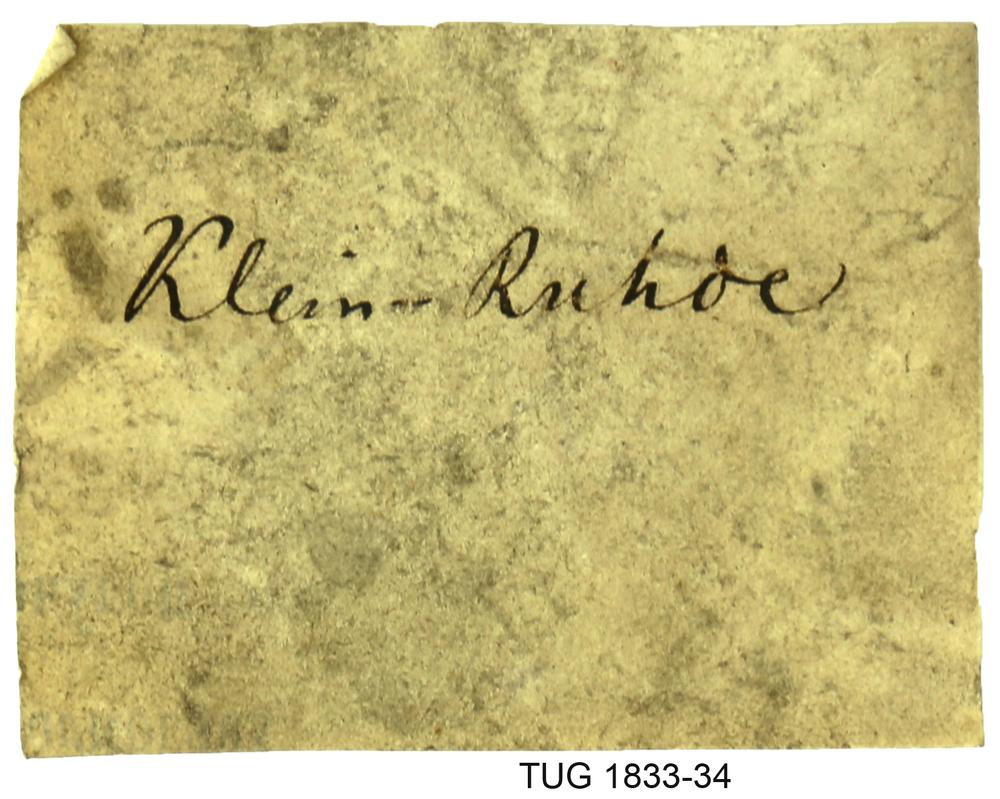 Klein-Ruhde
TUG 1833-34